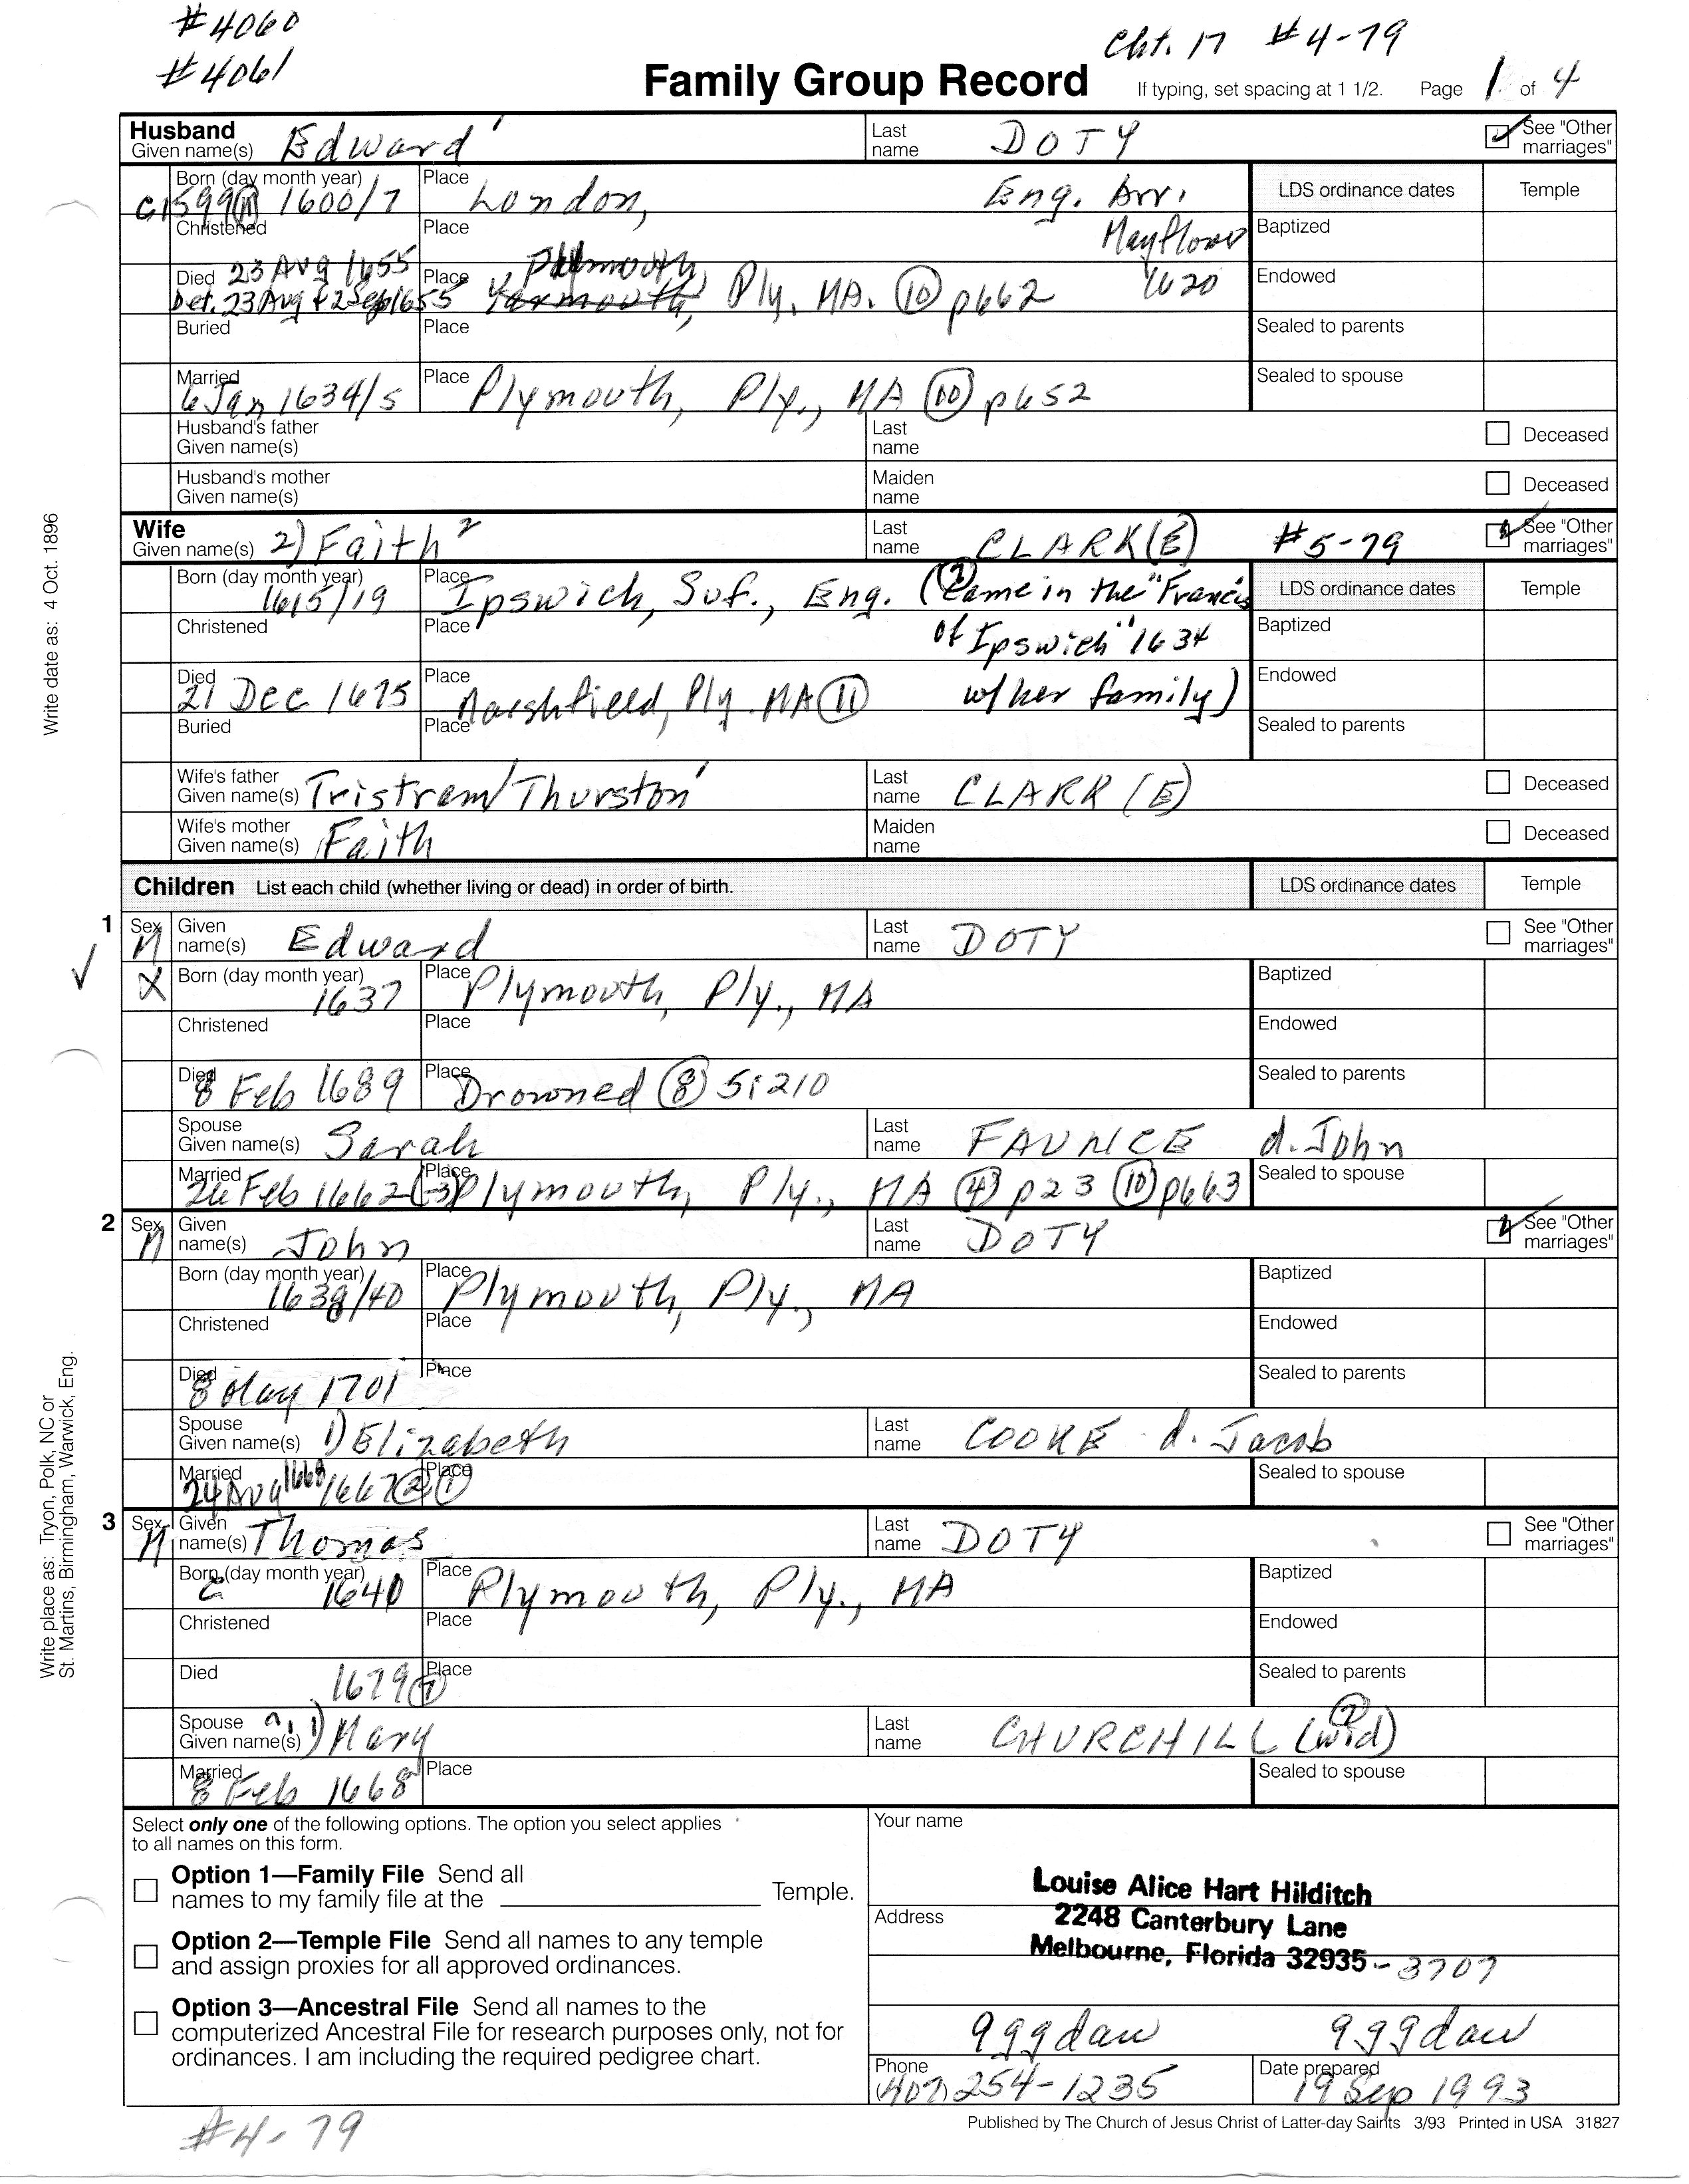 #4060
#4061
Cht. 17 #4-79
Family Group Record If typing, set spacing at 1 1/2. Page 1 of 4
Husband
Given name(s) Edward Last name DOTY See "Other marriages"
Born (day month year) C1599 (11) 1600/7 Place London, Eng. Arr. LDS ordinance dates Temple
Christened Place Mayflower Baptized
1620
Died 23 Aug 1655 Place Plymouth Endowed
Bet. 23 Aug & 2 Sep 1655 Yarmouth, Ply. MA. (10) p662
Buried Place Sealed to parents
Married 6 Jan 1634/5 Place Plymouth, Ply., MA (10) p652 Sealed to spouse
Husband's father Given name(s) Last name Deceased
Husband's mother Given name(s) Maiden name Deceased
Wife
Given name(s) 2) Faith 2 Last name CLARK(E) #5-79 See "Other marriages"
Born (day month year) 1615/19 Place Ipswich, Suf., Eng. (Came in the "Francis LDS ordinance dates Temple
Christened Place of Ipswich" 1634 Baptized
Died 21 Dec 1675 Place Marshfield, Ply. MA (11) w/her family) Endowed
Buried Place Sealed to parents
Wife's father Given name(s) Tristram/Thurston Last name CLARK (E) Deceased
Wife's mother Given name(s) Faith Maiden name Deceased
Children List each child (whether living or dead) in order of birth. LDS ordinance dates Temple
1 Sex M Given name(s) Edward Last name DOTY See "Other marriages"
X Born (day month year) 1637 Place Plymouth, Ply., MA Baptized
Christened Place Endowed
Died 8 Feb 1689 Place Drowned (8) 5:210 Sealed to parents
Spouse Given name(s) Sarah Last name FAUNCE d. John
Married 26 Feb 1662(-3) Place Plymouth, Ply., MA (4) p23 (10) p663 Sealed to spouse
2 Sex M Given name(s) John Last name DOTY See "Other marriages"
Born (day month year) 1639/40 Place Plymouth, Ply., MA Baptized
Christened Place Endowed
Died 8 May 1701 Place Sealed to parents
Spouse Given name(s) 1) Elizabeth Last name COOKE d. Jacob
Married 24 Aug 1668 1667 (2) (1) Place Sealed to spouse
3 Sex M Given name(s) Thomas Last name DOTY See "Other marriages"
Born (day month year) c 1640 Place Plymouth, Ply., MA Baptized
Christened Place Endowed
Died 1679 (7) Place Sealed to parents
Spouse Given name(s) 1) Mary Last name CHURCHILL (wid)
Married 8 Feb 1668 Place Sealed to spouse
Write date as: 4 Oct. 1896
Write place as: Tryon, Polk, NC or
St. Martins, Birmingham, Warwick, Eng.
Select only one of the following options. The option you select applies
to all names on this form.
Option 1—Family File Send all
names to my family file at the Temple.
Option 2—Temple File Send all names to any temple
and assign proxies for all approved ordinances.
Option 3—Ancestral File Send all names to the
computerized Ancestral File for research purposes only, not for
ordinances. I am including the required pedigree chart.
Your name
Louise Alice Hart Hilditch
Address
2248 Canterbury Lane
Melbourne, Florida 32935-3707
9ggdau 9ggdau
Phone (407) 254-1235 Date prepared 19 Sep 1993
Published by The Church of Jesus Christ of Latter-day Saints 3/93 Printed in USA 31827
#4-79